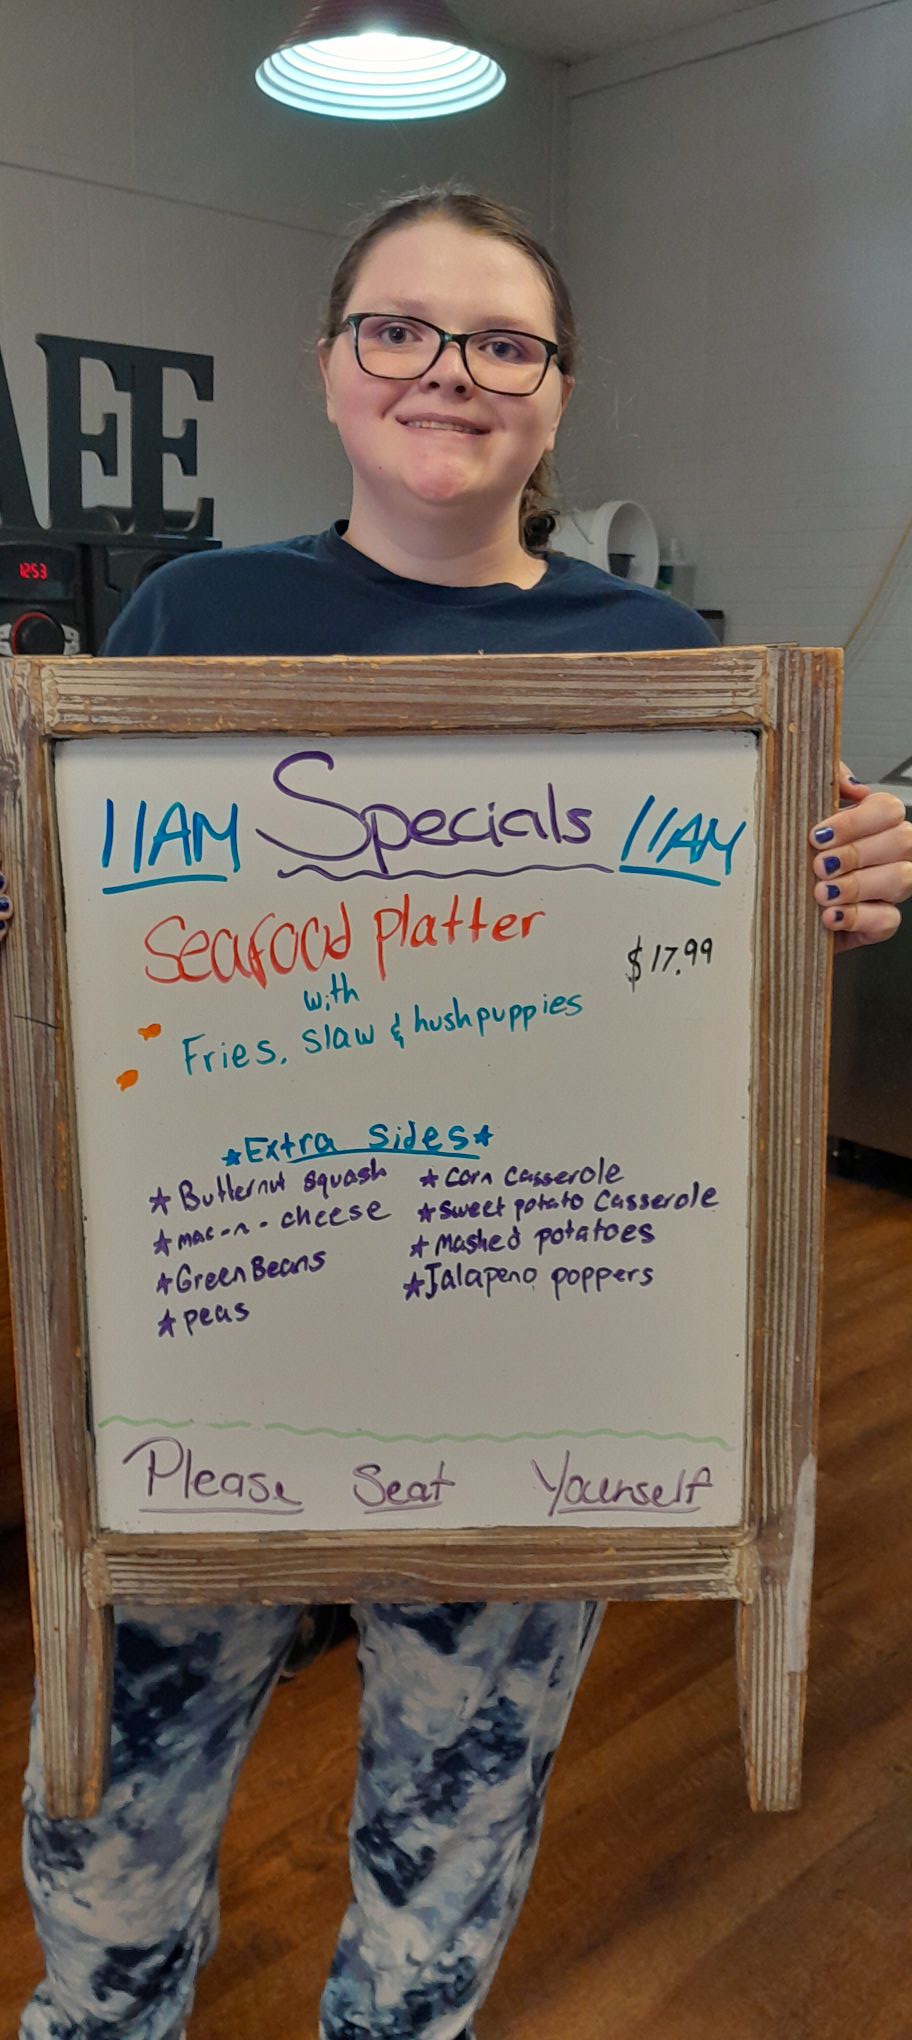 AFE
12:53
11AM Specials 11AM
Seafood Platter
$17.99
with
Fries, slaw & hushpuppies
★Extra Sides★
★Butternut squash ★Corn Casserole
★mac-n-cheese ★Sweet potato Casserole
★Green Beans ★Mashed potatoes
★peas ★Jalapeno poppers
Please Seat Yourself